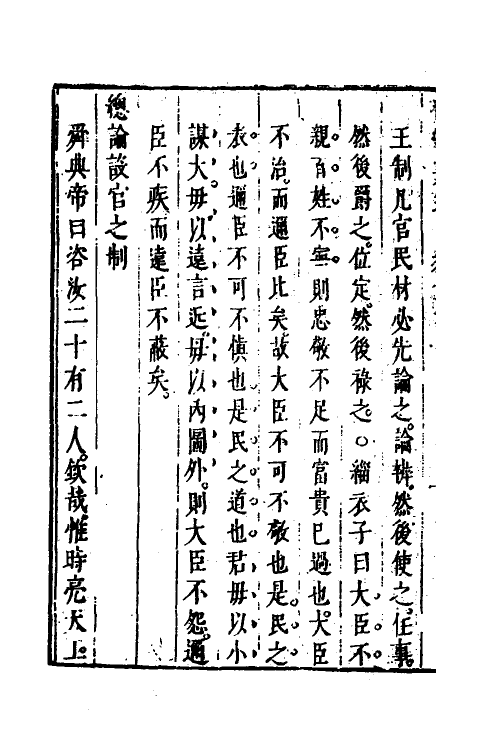 王制凡官民材必先論之。論辨。然後使之。任事。
然後爵之。位定。然後祿之。○緇衣子曰大臣不
親百姓不寧。則忠敬不足而富貴已過也。大臣
不治。而邇臣比矣。故大臣不可不敬也是民之
表也邇臣不可不慎也是民之道也君毋以小
謀大毋以遠言近。毋以內圖外。則大臣不怨。邇
臣不疾而遠臣不蔽矣。
總論設官之制
舜典帝曰咨汝二十有二人。欽哉惟時亮天上。